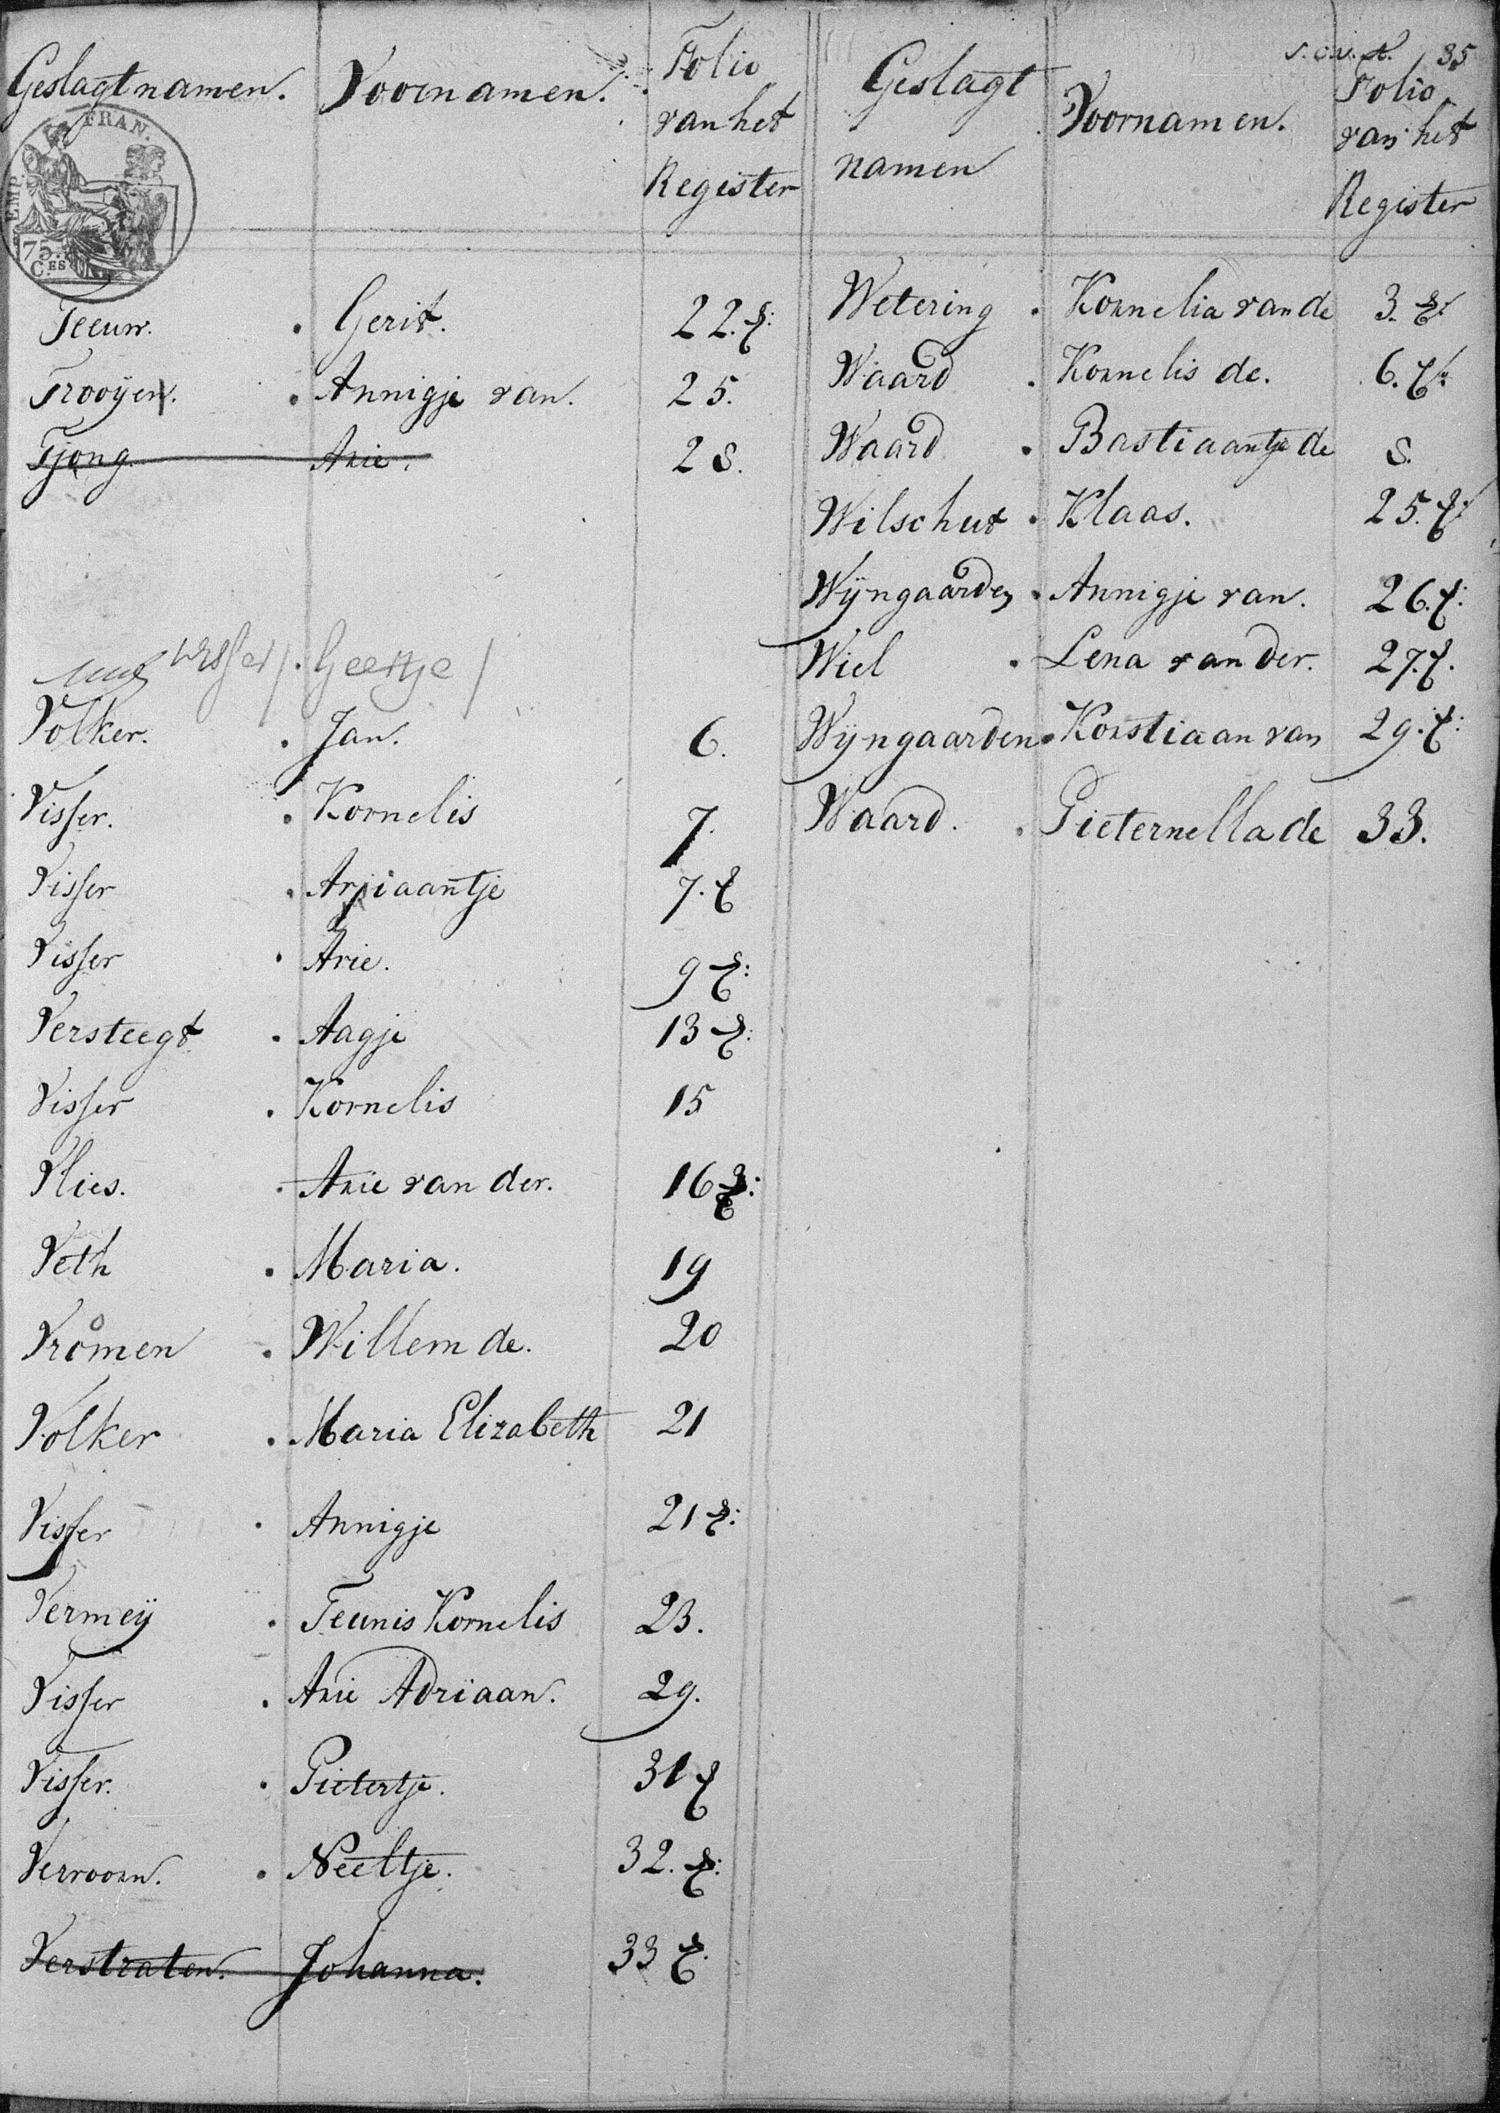 Geslagtnamen. Voornamen. Folio
van het
Register
EMP. FRAN.
75.
C.ES
Teeuw. Gerit. 22. ꝟ:
Trooÿen. Annigje van. 25.
Tjong. Arie. 28.
Visser Geertje
Volker. Jan. 6.
Visser. Kornelis 7.
Visser Arjiaantje 7. ꝟ
Visser Arie. 9 ꝟ:
Versteegt Aagje 13 ꝟ:
Visser Kornelis 15
Vlies. Arie van der. 16 ꝟ:
Veth Maria. 19
Vromen Willem de. 20
Volker Maria Elizabeth 21
Visser Annigje 21 ꝟ:
Vermeÿ Teunis Kornelis 23.
Visser Arie Adriaan. 29.
Visser. Pietertje. 31 ꝟ
Vervoorn. Neeltje. 32. ꝟ:
Verstraten. Johanna. 33 ꝟ.
35
Geslagt
namen Voornamen. Folio
van het
Register
Wetering Kornelia van de 3. ꝟ:
Waard Kornelis de. 6. ꝟ:
Waard Bastiaantje de 8.
Wilschut Klaas. 25. ꝟ:
Wÿngaarden Annigje van. 26. ꝟ:
Wiel Lena van der. 27. ꝟ.
Wÿngaarden Korstiaan van 29. ꝟ:
Waard. Pieternella de 33.